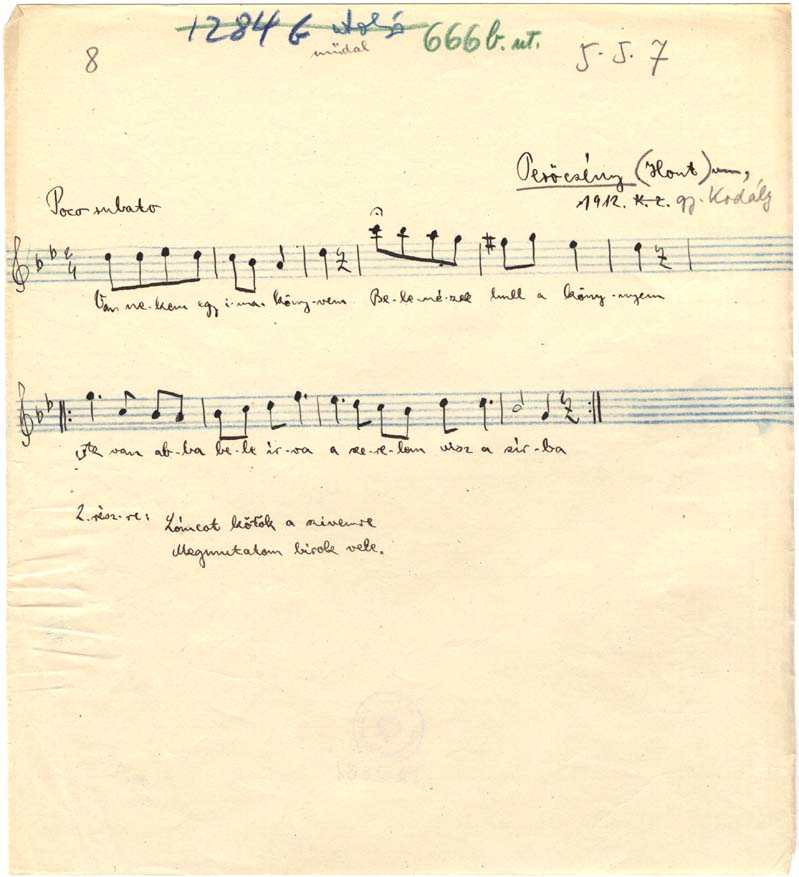 1284 b utolsó 666b. ut.
8 műdal 5. 5. 7
Perőcsény (Hont) um,
1912. K. Z. gy. Kodály
Poco rubato
2/4
Van ne-kem egy i-ma-köny-vem Be-le-né-zek hull a köny-nyem
van ab-ba be-le ir-va a sze-re-lem visz a sír-ba
2. rész-re: Láncot kötök a szivemre
Megmutatom birok vele.